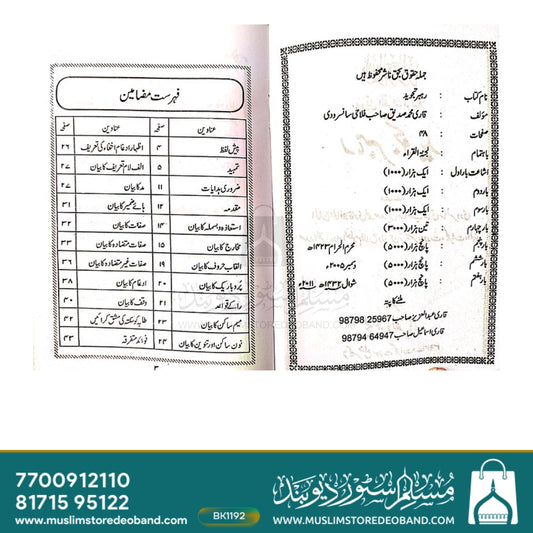 جملہ حقوق بحق ناشر محفوظ ہیں
نام کتاب : رہبر تجوید
مؤلف : قاری محمد صدیق صاحب فلاحی سانسرودی
صفحات : ۴۸
باہتمام : لجنۃ القراء
اشاعت بار اول : ایک ہزار (۱۰۰۰)
بار دوم : ایک ہزار (۱۰۰۰)
بار سوم : ایک ہزار (۱۰۰۰)
بار چہارم : تین ہزار (۳۰۰۰)
بار پنجم : پانچ ہزار (۵۰۰۰) محرم الحرام ۱۴۲۳ھ
بار ششم : پانچ ہزار (۵۰۰۰) دسمبر ۲۰۰۵ء
بار ہفتم : پانچ ہزار (۵۰۰۰) شوال ۱۴۳۲ھ ۲۰۱۱ء
ملنے کا پتہ
قاری عبدالعزیز صاحب 98798 25967
قاری اسماعیل صاحب 98794 64947
فہرست مضامین
عناوین صفحہ عناوین صفحہ
پیش لفظ ۴ اظہار ادغام اخفاء کی تعریف ۲۶
تمہید ۵ الف لام تعریف کا بیان ۲۷
ضروری ہدایات ۱۱ مد کا بیان ۲۷
مقدمہ ۱۲ ہائے ضمیر کا بیان ۳۱
استعاذہ و بسملہ کا بیان ۱۴ صفات کا بیان ۳۲
مخارج کا بیان ۱۵ صفات متضادہ کا بیان ۳۳
القاب حروف کا بیان ۱۹ صفات غیر متضادہ کا بیان ۳۶
پُر و باریک کا بیان ۲۰ ادغام کا بیان ۳۸
را کے قواعد ۲۱ وقف کا بیان ۴۰
میم ساکن کا بیان ۲۳ طلبہ کو سکتہ کی مشق کرائیں ۴۲
نون ساکن اور تنوین کا بیان ۲۴ فوائد متفرقہ ۴۳
۳
مسلم اسٹور دیوبند
WWW.MUSLIMSTOREDEOBAND.COM
7700912110
81715 95122
www.muslimstoredeoband.com
BK1192
مسلم اسٹور دیوبند
WWW.MUSLIMSTOREDEOBAND.COM